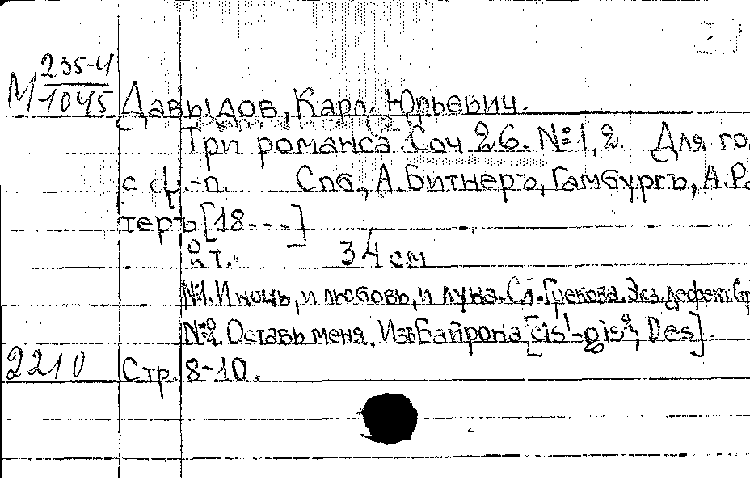 М 235-4
1045
Давыдов, Карл Юльевич.
Три романса. Соч. 26. № 1, 2. Для го
с ф.-п. Спб., А. Битнеръ, Гамбургъ, А. Ра
теръ [18---]
2 т. 34 см
№1. И ночь, и любовь, и луна. Сл. Грекова. Экз. дефект.
№2. Оставь меня. Изъ Байрона [cis¹-gis², Des].
2210 Стр. 8-10.